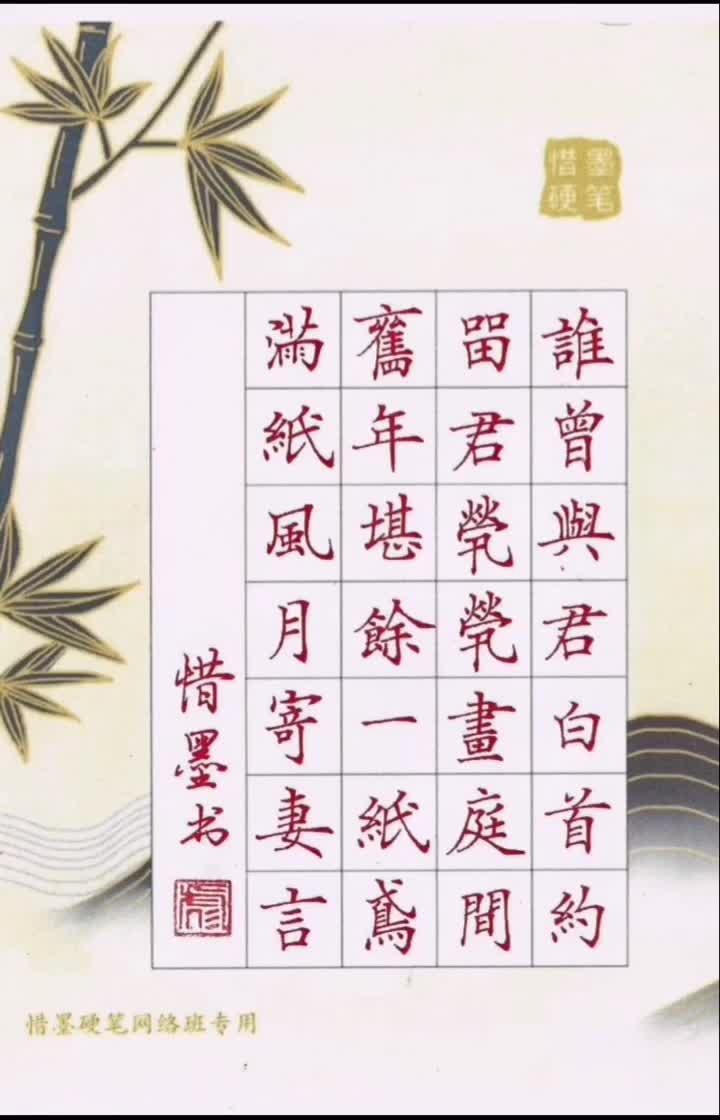 惜墨
硬笔
誰曾與君白首約
㽞君煢煢畫庭間
舊年堪餘一紙鳶
滿紙風月寄妻言
惜墨书
惜墨硬笔网络班专用